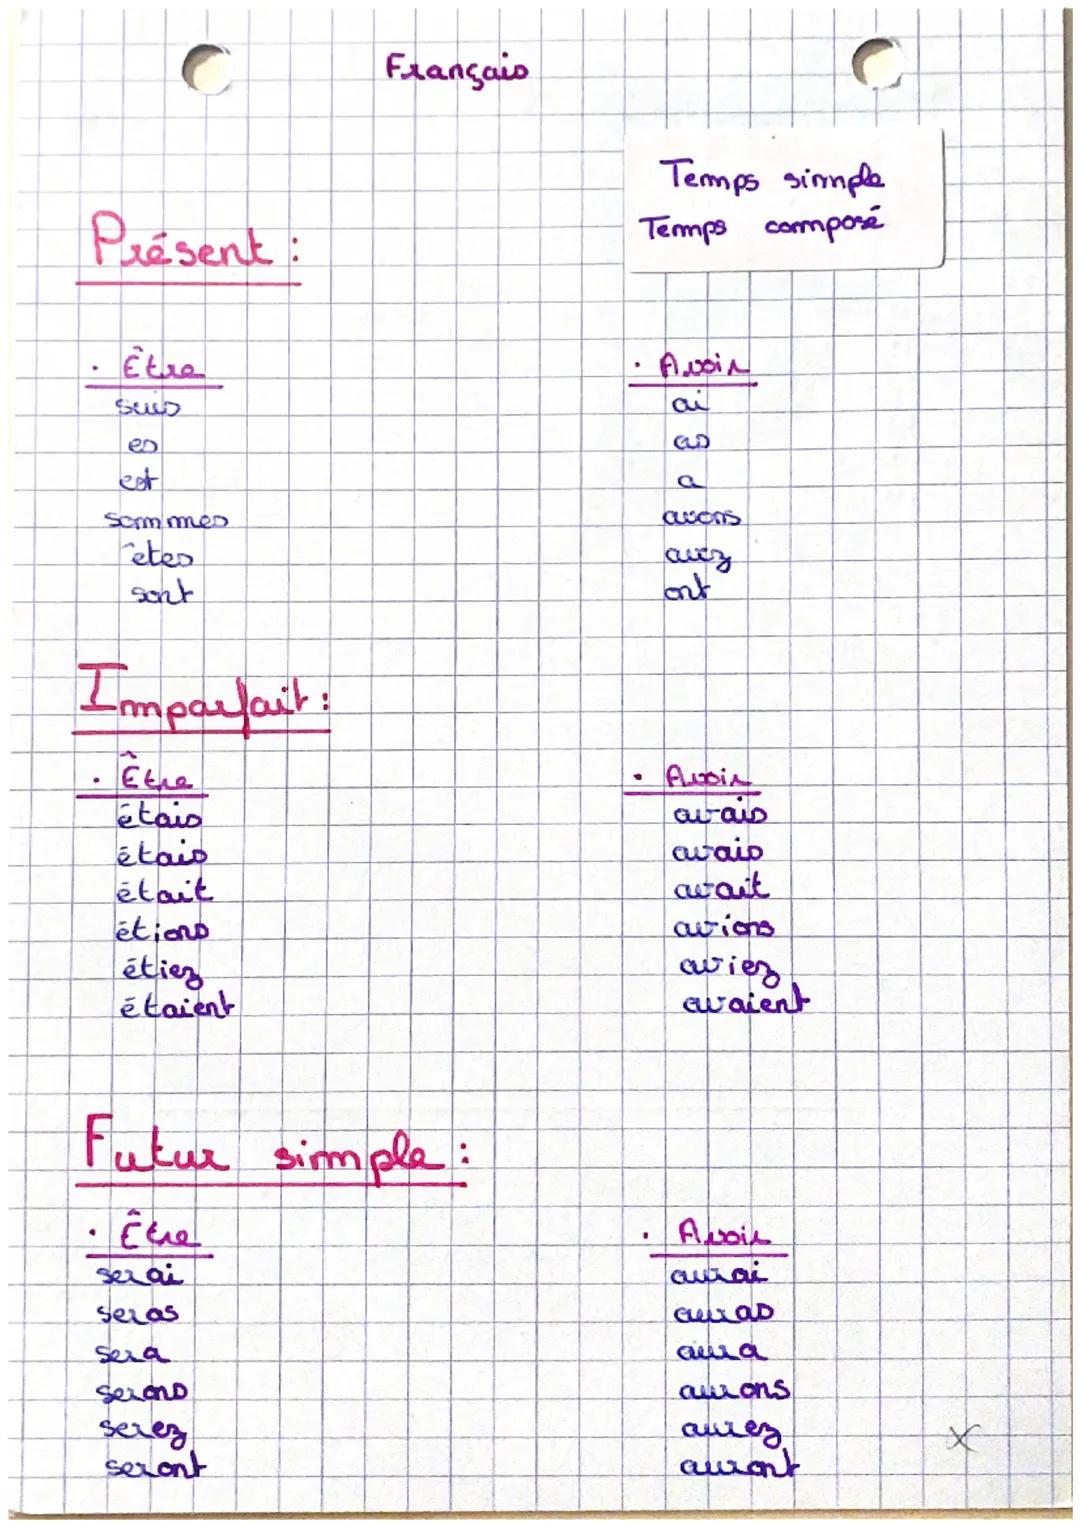 Français
Temps simple
Temps composé
Présent :
. Être
suis
es
est
sommes
êtes
sont
. Avoir
ai
as
a
avons
avez
ont
Imparfait :
. Être
étais
étais
était
étions
étiez
étaient
. Avoir
avais
avais
avait
avions
aviez
avaient
Futur simple :
. Être
serai
seras
sera
serons
serez
seront
. Avoir
aurai
auras
aura
aurons
aurez
auront
x